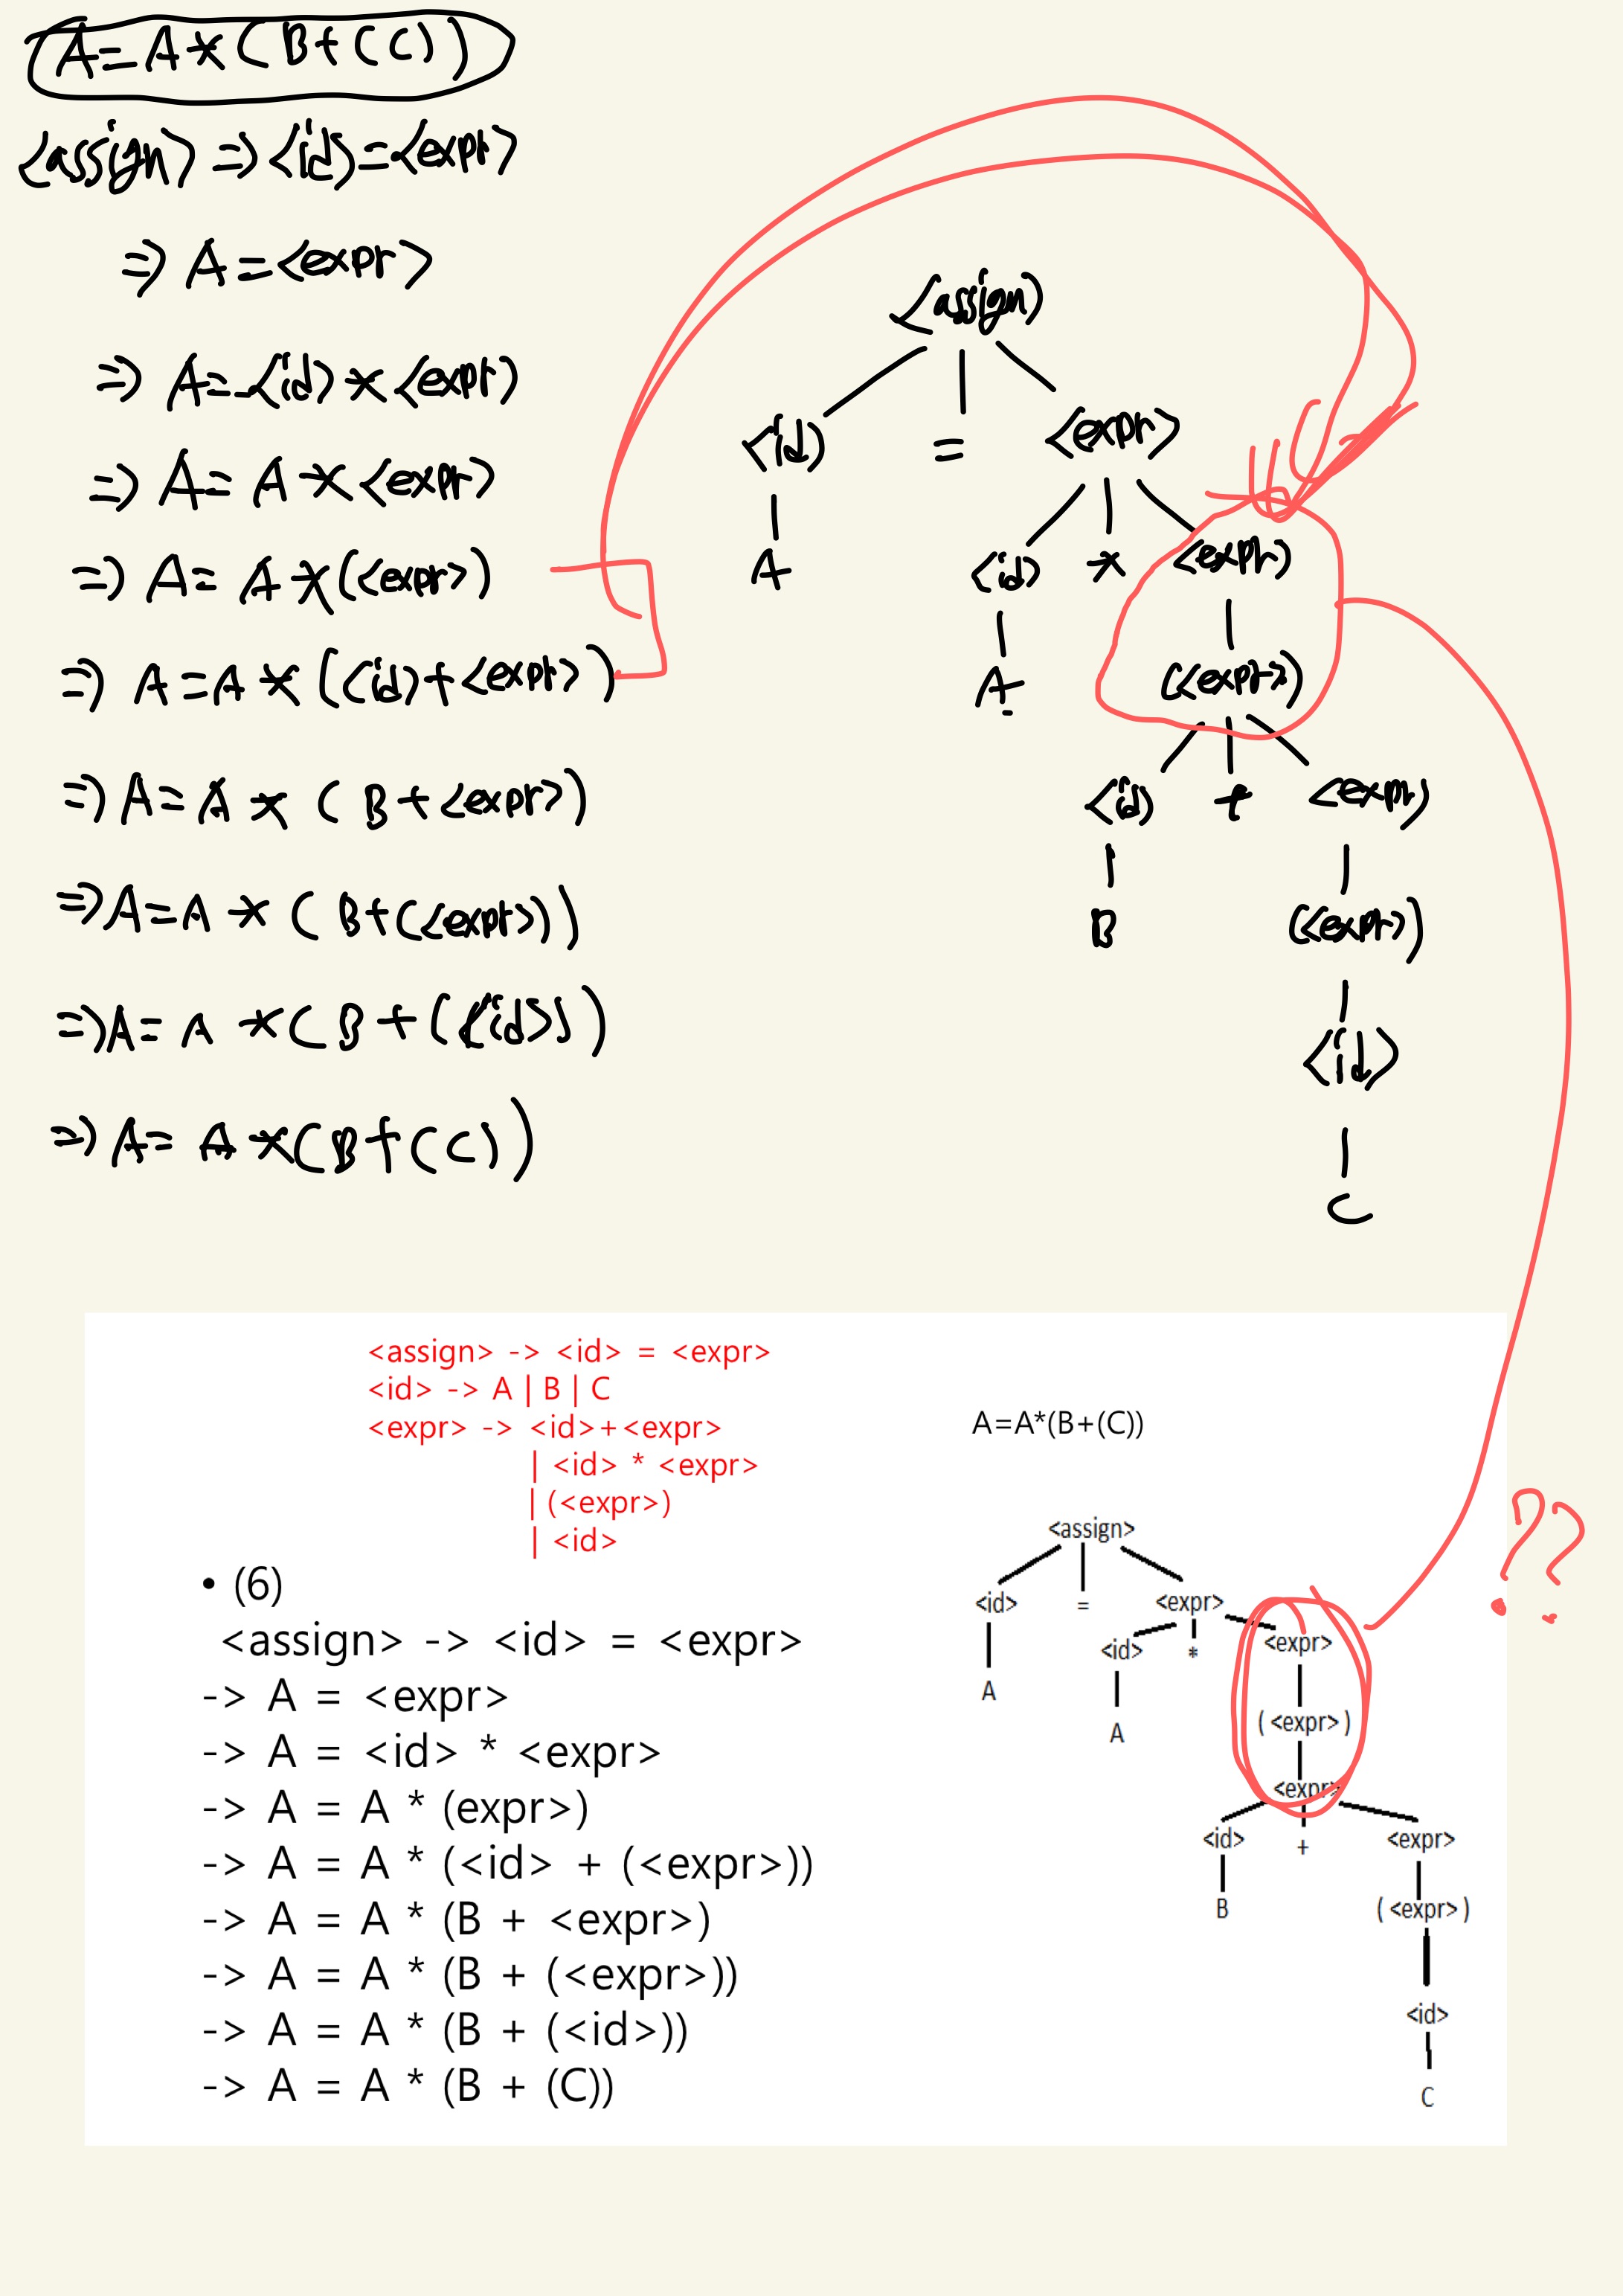 A=A*(B+(C))
<assign> => <id>=<expr>
=> A=<expr>
=> A=<id>*<expr>
=> A=A*<expr>
=> A=A*(<expr>)
=> A=A*(<id>+<expr>)
=> A=A*(B+<expr>)
=> A=A*(B+(<expr>))
=> A=A*(B+(<id>))
=> A=A*(B+(C))
<assign>
<id> = <expr>
A <id> * <expr>
A (<expr>)
<id> + <expr>
B (<expr>)
<id>
C
<assign> -> <id> = <expr>
<id> -> A | B | C
<expr> -> <id>+<expr>
| <id> * <expr>
| (<expr>)
| <id>
• (6)
<assign> -> <id> = <expr>
-> A = <expr>
-> A = <id> * <expr>
-> A = A * (expr>)
-> A = A * (<id> + (<expr>))
-> A = A * (B + <expr>)
-> A = A * (B + (<expr>))
-> A = A * (B + (<id>))
-> A = A * (B + (C))
A=A*(B+(C))
<assign>
<id> = <expr>
<id> * <expr>
A A (<expr>)
<expr>
<id> + <expr>
B (<expr>)
<id>
C
??